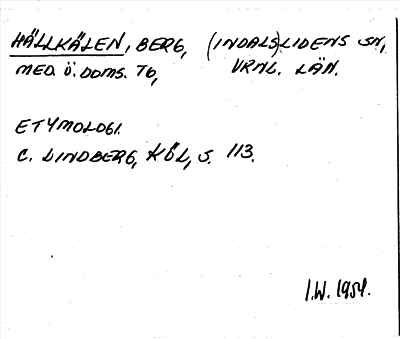 HÄLLKÄLEN, BERG, (INDALS)LIDENS SN,
MED. Ö. DOMS. TB, VRNL. LÄN.
ETYMOLOGI.
C. LINDBERG, KÖL, S. 113.
I.W. 1954.